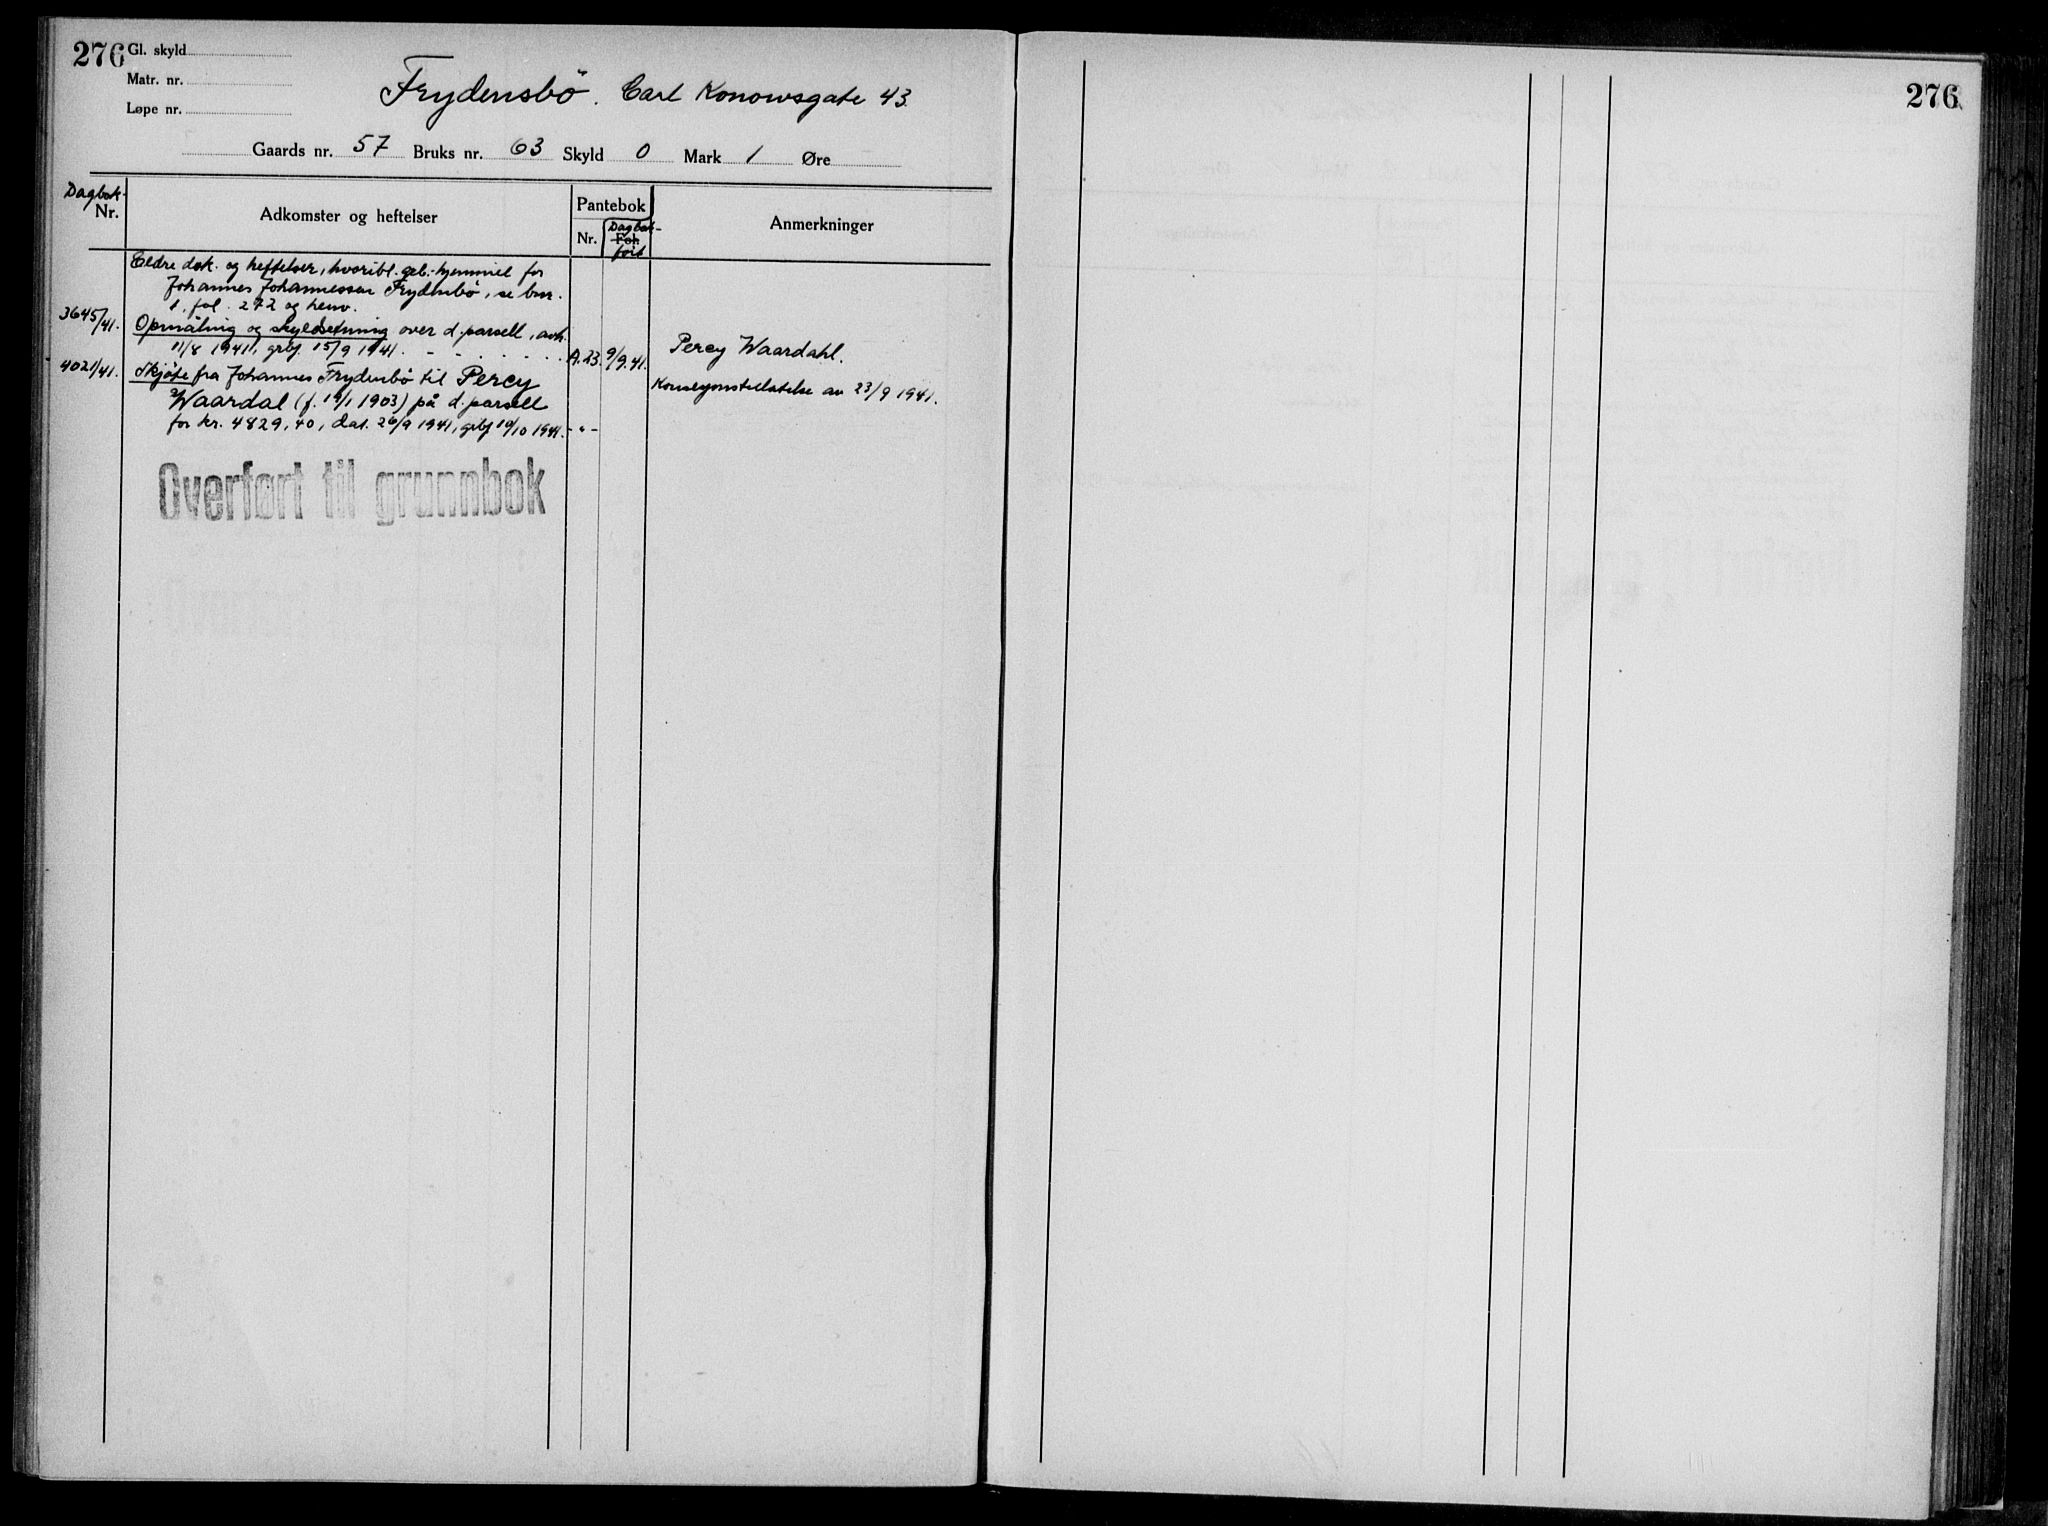 276
Gl. skyld
Matr. nr.
Løpe nr.
Frydensbö. Carl Konowsgate 43.
Gaards nr. 57 Bruks nr. 63 Skyld 0 Mark 1 Øre
Dagbok-
Nr.
Adkomster og heftelser
Pantebok
Nr.
Dagbok-
Fol.
ført
Anmerkninger
Eldre dok. og heftelser, hvoribl. grb.-hjemmel for
Johannes Johannessen Frydenbö, se bnr.
1, fol. 272 og henv.
3645/41. Opmåling og skyldsetning over d. parsell, avh.
11/8 1941, grbf. 15/9 1941. A.23. 9/9.41. Percy Waardahl.
4021/41. Skjøte fra Johannes Frydenbö til Percy
Waardal (f. 19/1 1903) på d. parsell Konsesjonstillatelse av 23/9 1941.
for kr. 4829,40, dat. 26/9 1941, grbf 10/10 1941. -"-
Overført til grunnbok
276